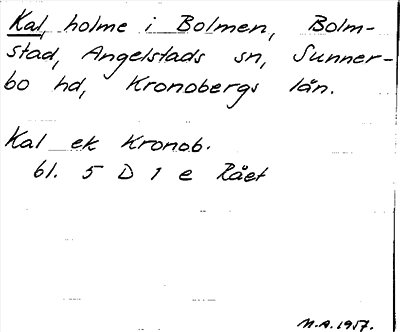 Kal, holme i Bolmen, Bolm-
stad, Angelstads sn, Sunner-
bo hd, Kronobergs län.
Kal ek Kronob.
bl. 5 D 1 e Rået
M.A. 1957.